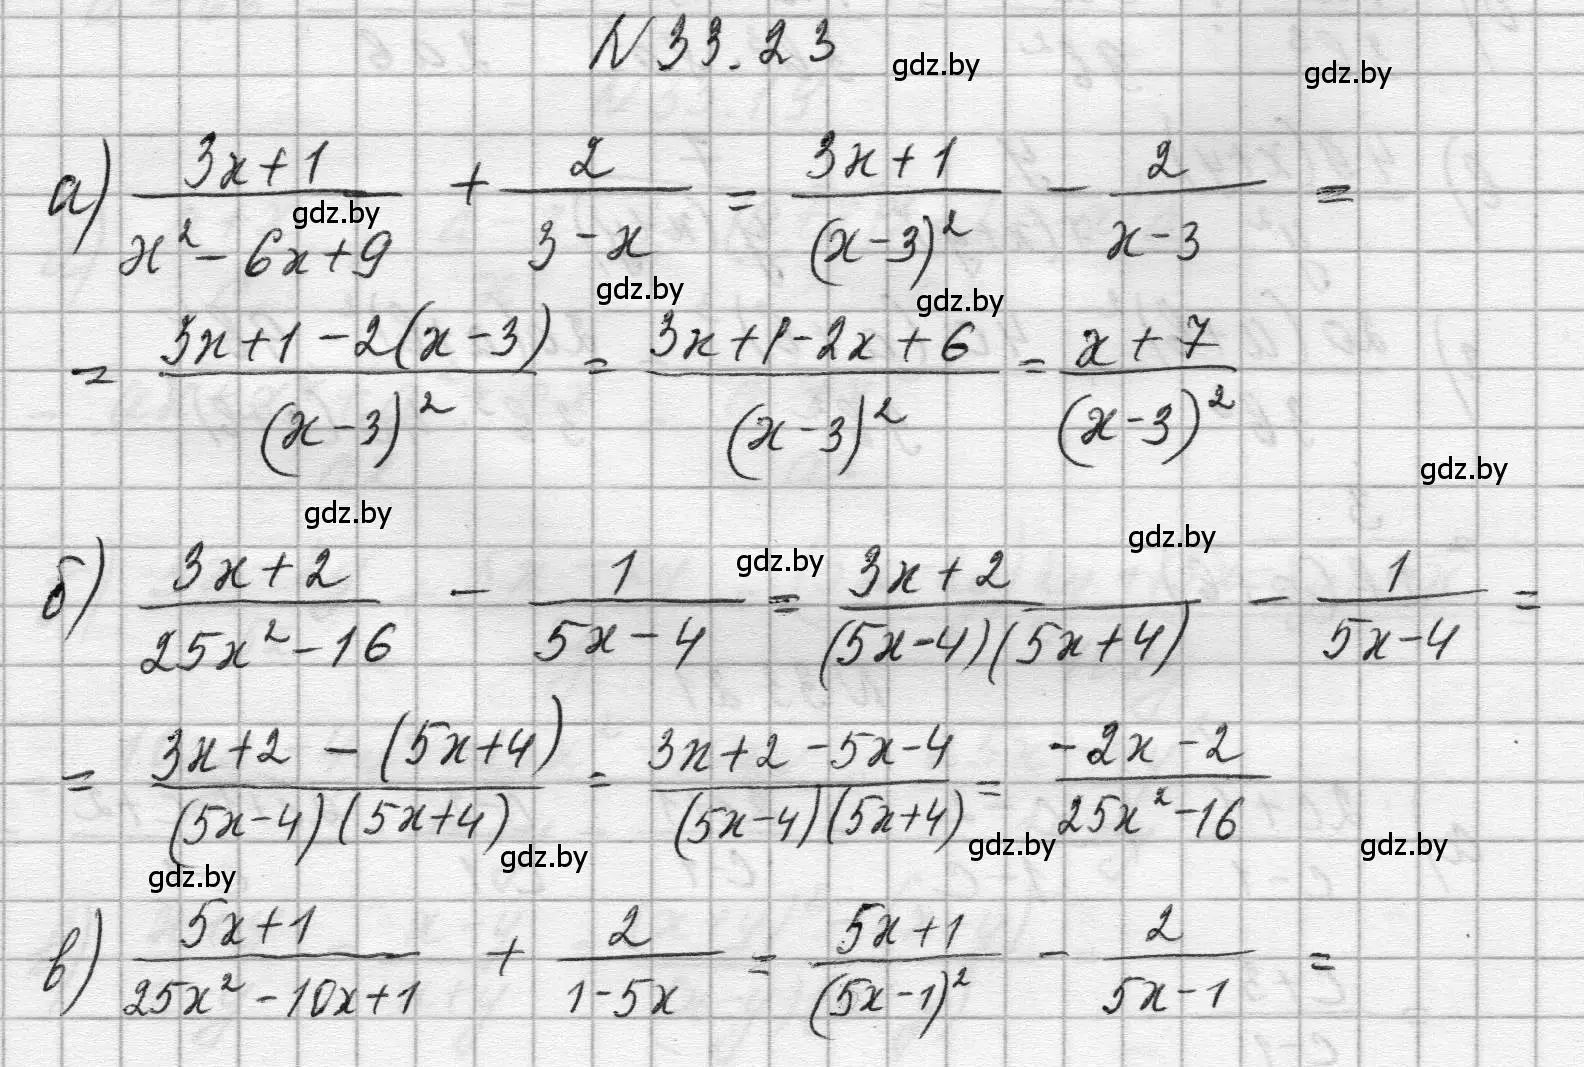 N 33.23
gdz.by
gdz.by
а) (3x+1)/(x²-6x+9) + 2/(3-x) = (3x+1)/(x-3)² - 2/(x-3) =
gdz.by
gdz.by
gdz.by
= (3x+1-2(x-3))/(x-3)² = (3x+1-2x+6)/(x-3)² = (x+7)/(x-3)²
gdz.by
gdz.by
gdz.by
gdz.by
б) (3x+2)/(25x²-16) - 1/(5x-4) = (3x+2)/((5x-4)(5x+4)) - 1/(5x-4) =
= (3x+2-(5x+4))/((5x-4)(5x+4)) = (3x+2-5x-4)/((5x-4)(5x+4)) = (-2x-2)/(25x²-16)
gdz.by
gdz.by
gdz.by
gdz.by
в) (5x+1)/(25x²-10x+1) + 2/(1-5x) = (5x+1)/(5x-1)² - 2/(5x-1) =